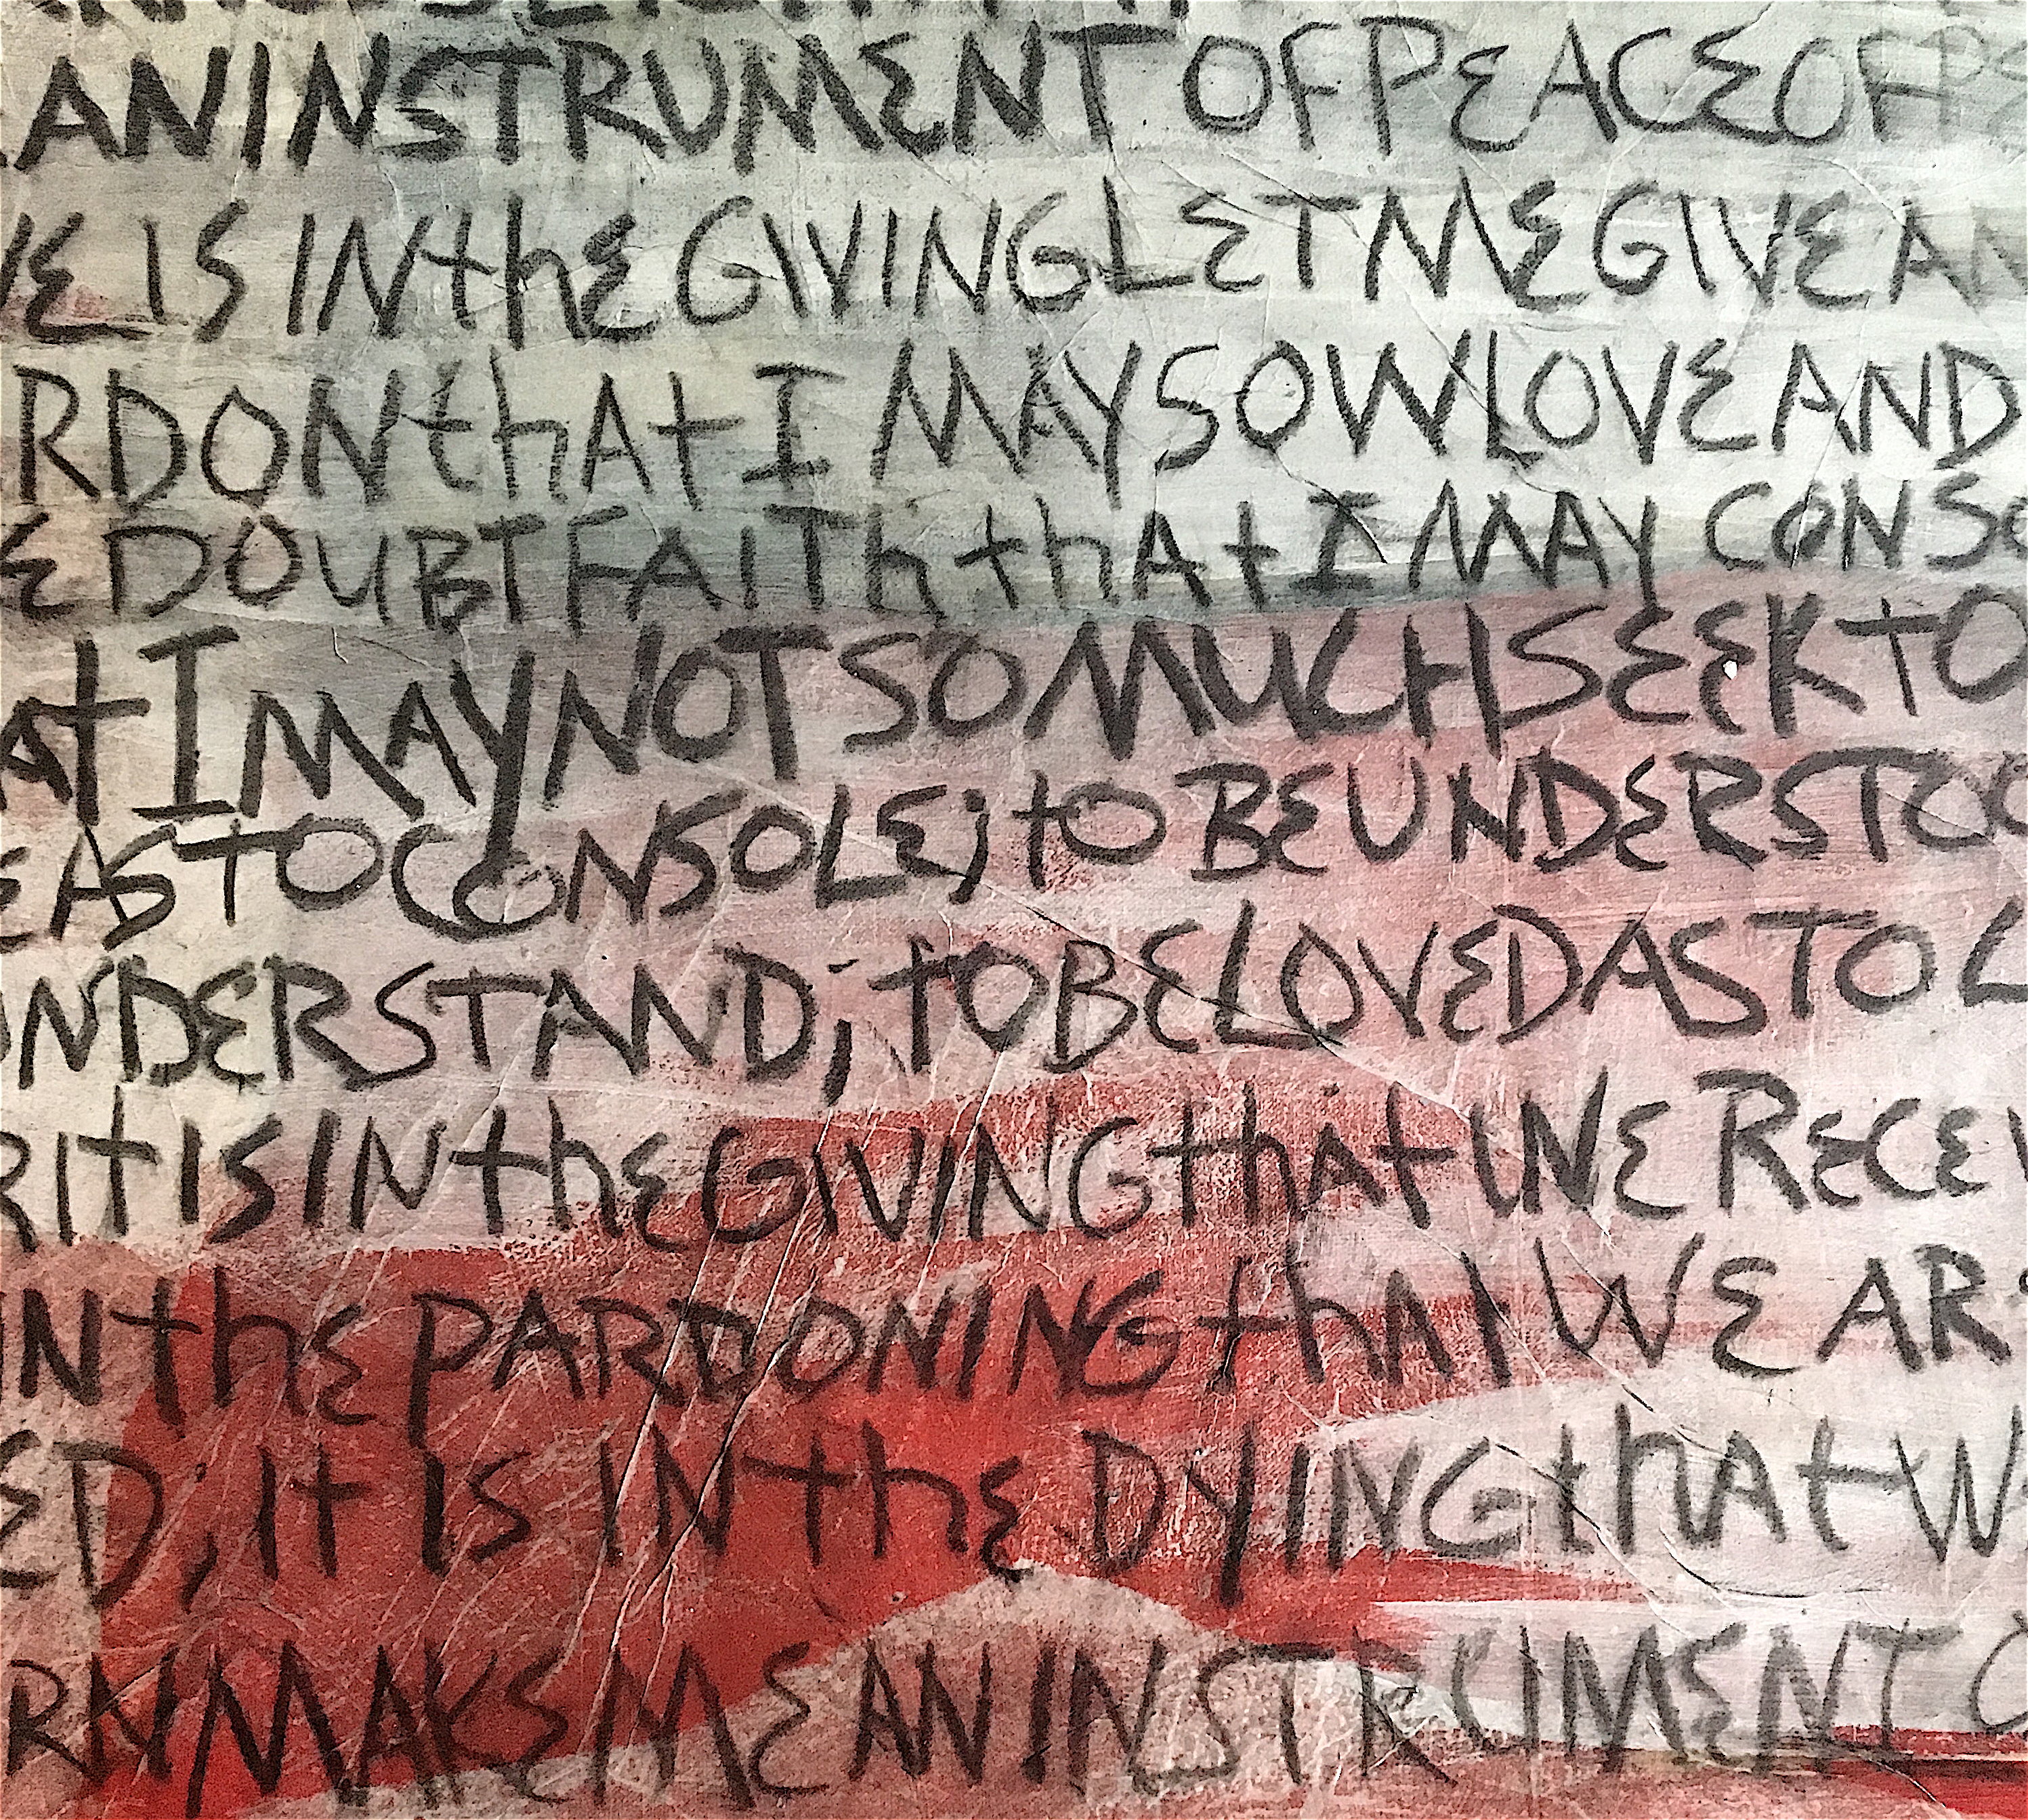 AN INSTRUMENT OF PEACE OF PE
VE IS IN thE GIVING LET ME GIVE AN
RDON thAt I MAY SOW LOVE AND
E DOUBT FAITh thAt I MAY CONSO
At I MAY NOT SO MUCH SEEK tO
E AS TO CONSOLE; tO BE UNDERSTOO
UNDERSTAND; tO BE LOVED AS TO L
R It IS IN thE GIVING thAt WE RECEI
IN thE PARDONING thAt WE AR
ED; It IS IN thE DYING thAt W
RN MAKE ME AN INSTRUMENT O